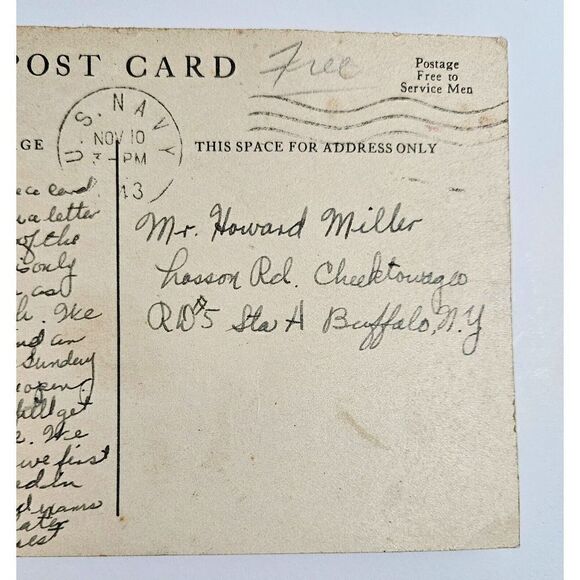 POST CARD
Free
Postage
Free to
Service Men
U.S. NAVY
NOV 10
3-PM
43
GE
THIS SPACE FOR ADDRESS ONLY
Mr. Howard Miller
Losson Rd. Cheektowago
RD#5 Sta H Buffalo, N.Y
card
a letter
of the
only
as
We
an
Sunday
open
get
We
we first
ed in
ater